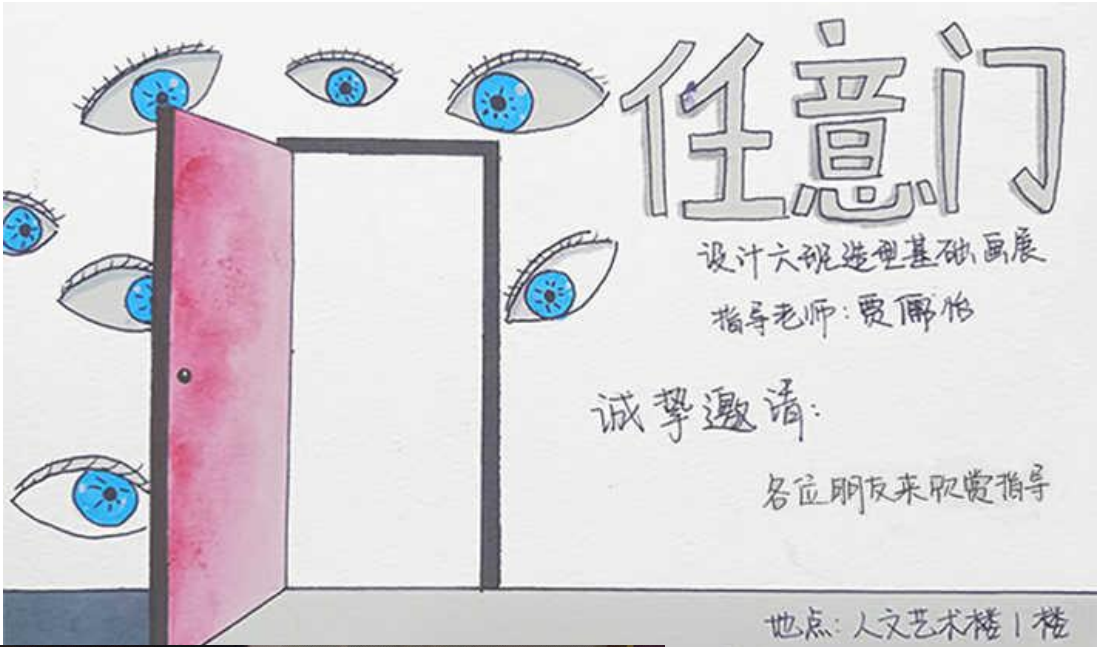 任意门
设计六班造型基础画展
指导老师:贾儒怡
诚挚邀请:
各位朋友来欣赏指导
地点:人文艺术楼1楼